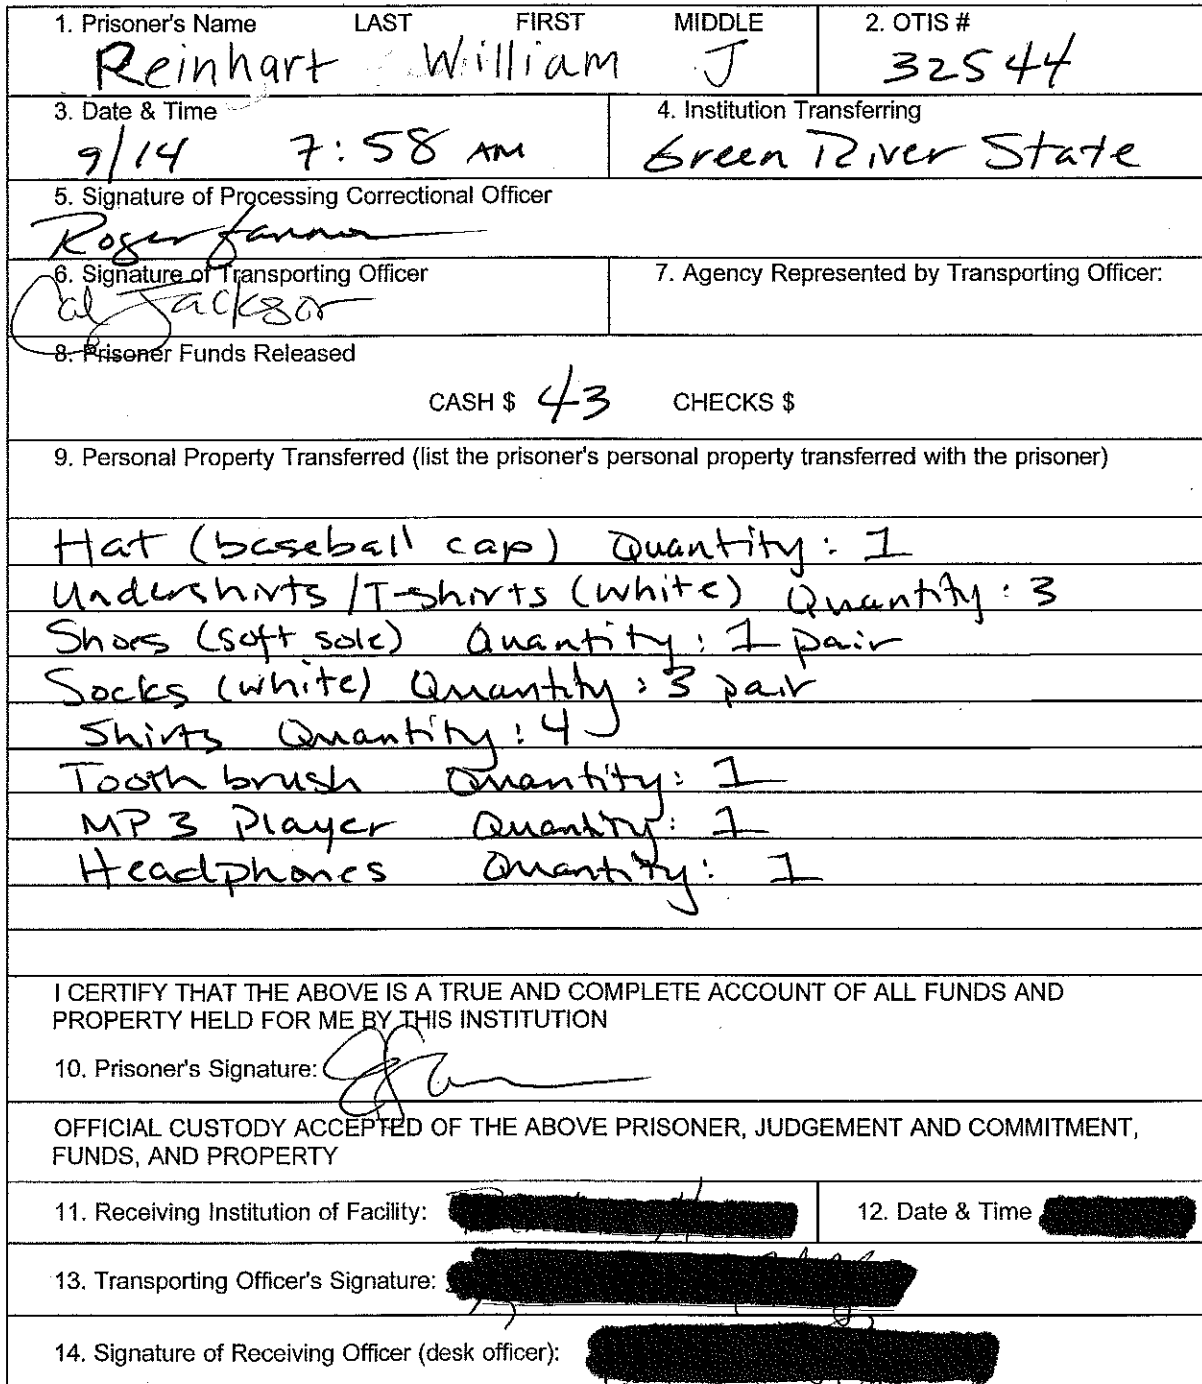 1. Prisoner's Name LAST FIRST MIDDLE 2. OTIS #
Reinhart William J 32544
3. Date & Time 4. Institution Transferring
9/14 7:58 AM Green River State
5. Signature of Processing Correctional Officer
Roger
6. Signature of Transporting Officer 7. Agency Represented by Transporting Officer:
Cal Jackson
8. Prisoner Funds Released
CASH $ 43 CHECKS $
9. Personal Property Transferred (list the prisoner's personal property transferred with the prisoner)
Hat (baseball cap) Quantity: 1
Undershirts/T-shirts (white) Quantity: 3
Shoes (soft sole) Quantity: 1 pair
Socks (white) Quantity: 3 pair
Shirts Quantity: 4
Tooth brush Quantity: 1
MP3 Player Quantity: 1
Headphones Quantity: 1
I CERTIFY THAT THE ABOVE IS A TRUE AND COMPLETE ACCOUNT OF ALL FUNDS AND
PROPERTY HELD FOR ME BY THIS INSTITUTION
10. Prisoner's Signature:
OFFICIAL CUSTODY ACCEPTED OF THE ABOVE PRISONER, JUDGEMENT AND COMMITMENT,
FUNDS, AND PROPERTY
11. Receiving Institution of Facility: 12. Date & Time
13. Transporting Officer's Signature:
14. Signature of Receiving Officer (desk officer):